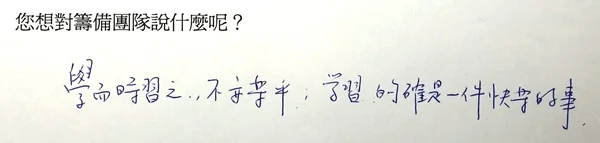 您想對籌備團隊說什麼呢？
學而時習之,不亦樂乎;学習的確是一件快樂的事.